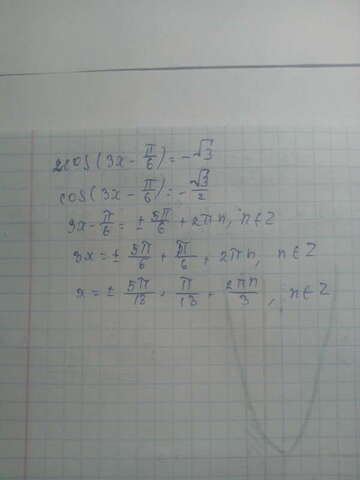 2cos(3x - π/6) = -√3
cos(3x - π/6) = -√3/2
3x - π/6 = ± 5π/6 + 2πn, n∈Z
3x = ± 5π/6 + π/6 + 2πn, n∈Z
x = ± 5π/18 + π/18 + 2πn/3, n∈Z